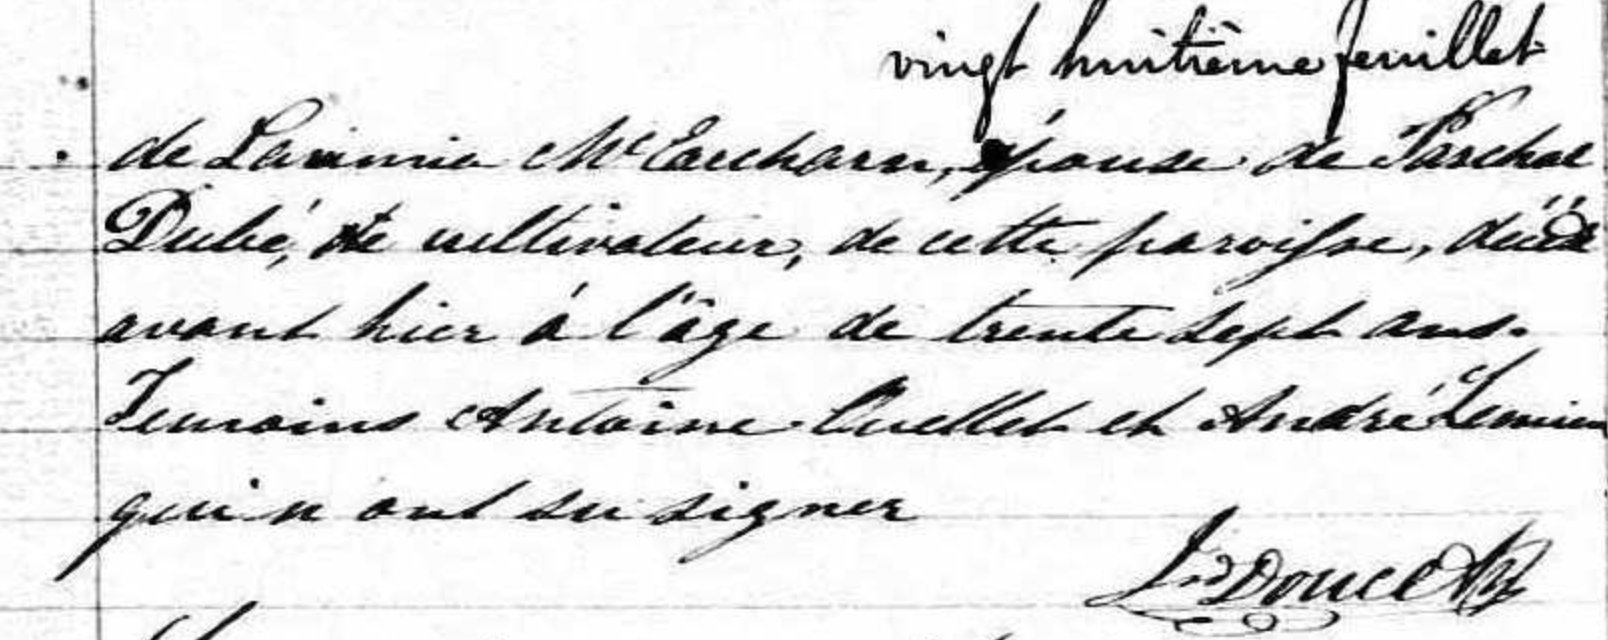 vingt huitième feuillet
de Lavinia McEachern, épouse de Paschal
Dubé, cultivateur, de cette paroisse, décédé
avant hier à l'âge de trente sept ans.
Temoins Antoine Ouellet et André Lemieu
qui n ont su signer
Ls Doucet Ptr